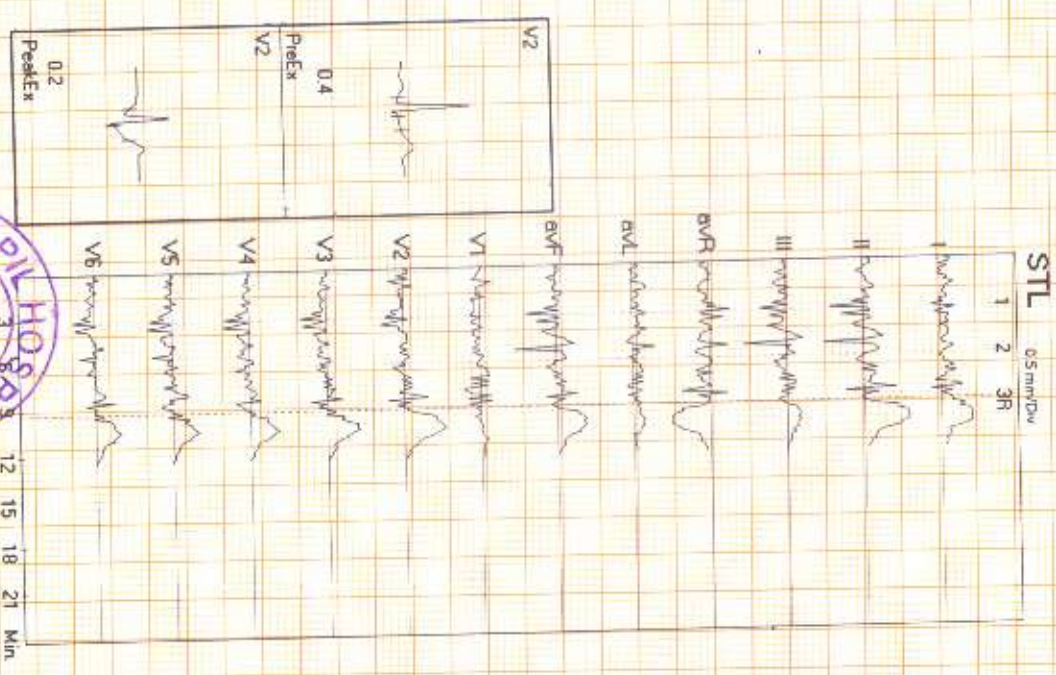 STL 0.5 mm/Div
1 2 3R
I
II
III
avR
avL
avF
V1
V2
V3
V4
V5
V6
3 6 9 12 15 18 21 Min.
V2
0.4
PreEx
V2
0.2
PeakEx
OIL HOSP